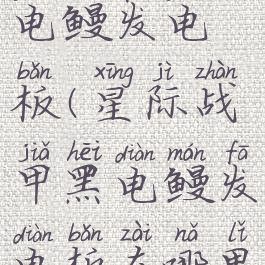 电鳗发电
bǎn xīng jì zhàn
板(星际战
jiǎ hēi diàn mán fā
甲黑电鳗发
diàn bǎn zài nǎ lǐ
电板在哪里